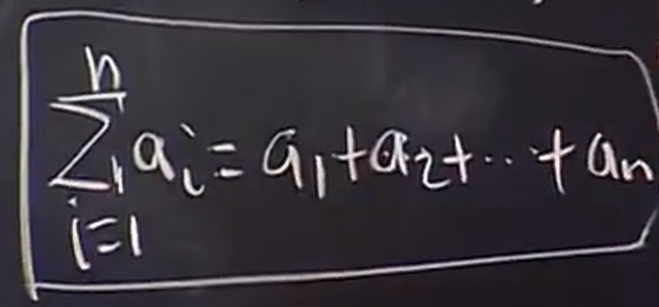 \sum_{i=1}^{n} a_i = a_1 + a_2 + \cdots + a_n